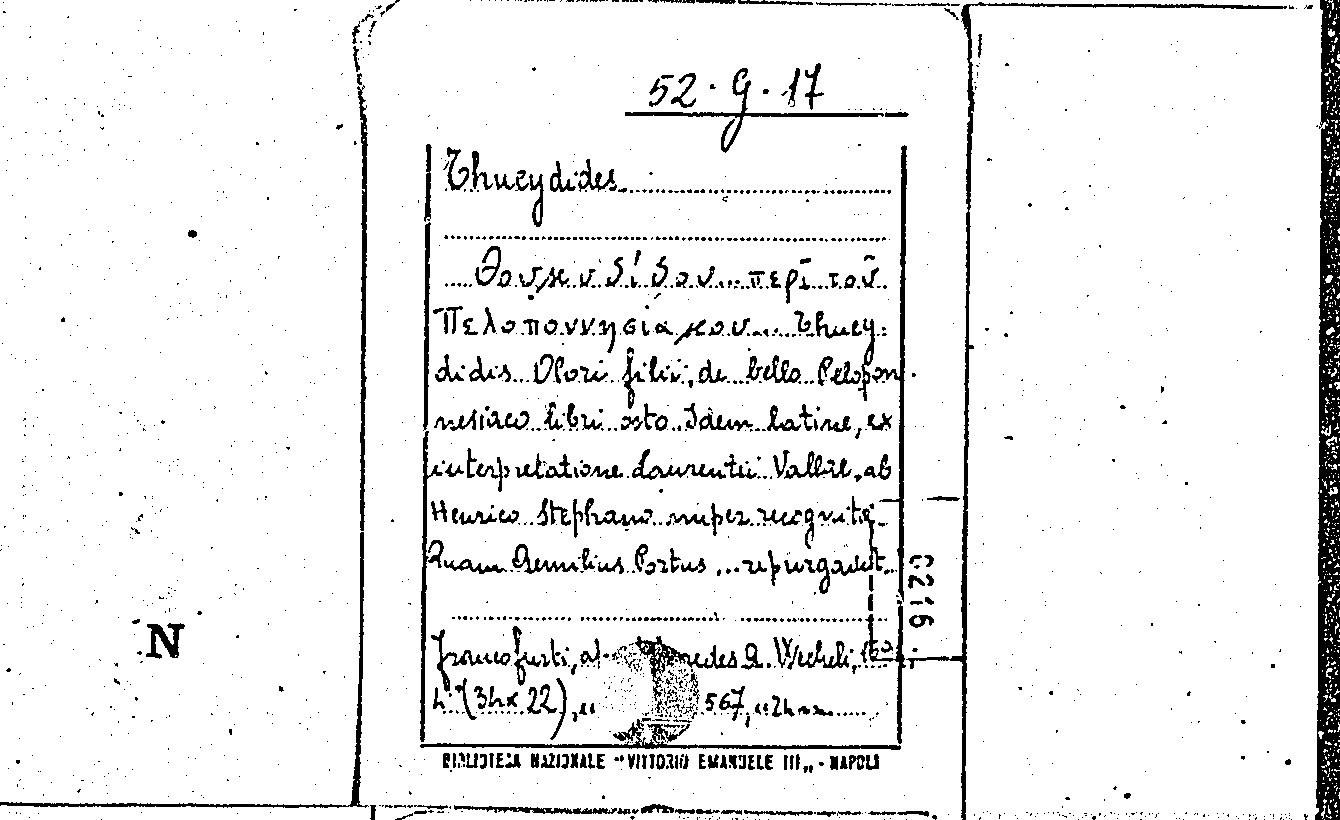 52.G.17
Thucydides
Θουκυδίδου... περὶ τοῦ
Πελοποννησιακου... Thucy-
didis Olori filii, de bello Pelopon-
nesiaco libri octo Idem latine, ex
interpretatione Laurentii Vallae, ab
Henrico Stephano nuper recognita,
Quam Aemilius Portus ... repurgavit.
Francofurti, redes A. Wecheli,
4° (34x22), 567,
BIBLIOTECA NAZIONALE "VITTORIO EMANUELE III„ - NAPOLI
N
C216